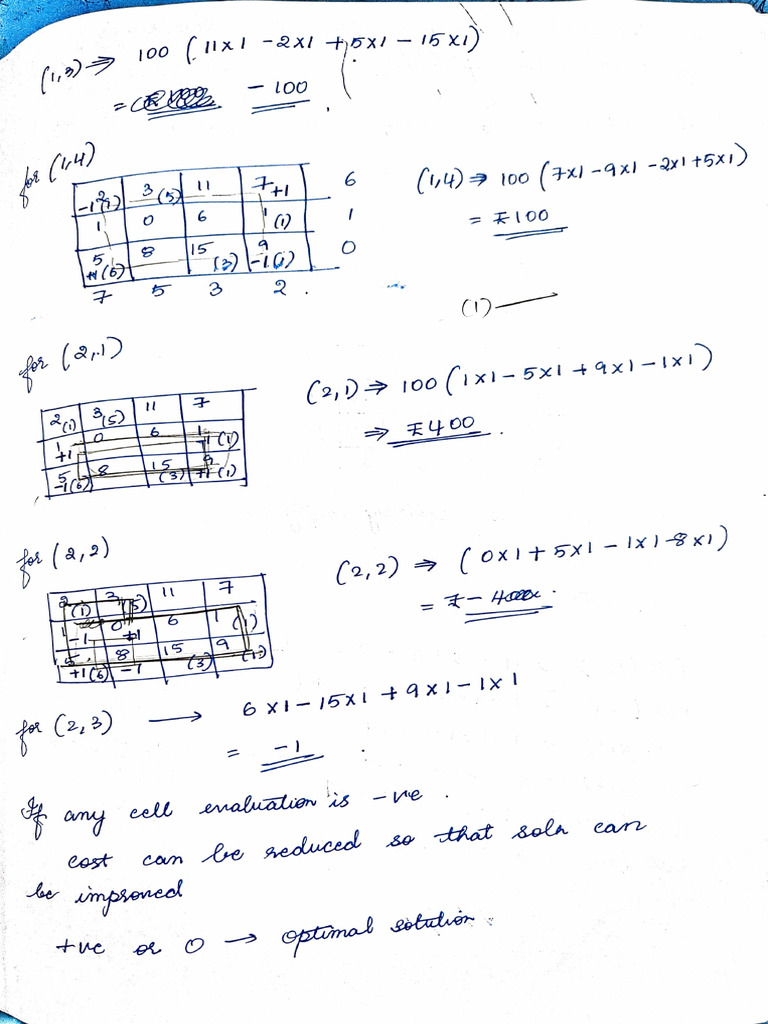 (1,3) ⇒ 100 (11x1 - 2x1 + 5x1 - 15x1)
= - 100.
for (1,4)
2 -1(1) 3 (5) 11 7 +1 6
1 0 6 1 (1) 1
5 +1(6) 8 15 (3) 9 -1(1) 0
7 5 3 2.
(1,4) ⇒ 100 (7x1 - 9x1 - 2x1 + 5x1)
= ₹100
(1)
for (2,1)
2(1) 3(5) 11 7
1 +1 0 6 1 -1(1)
5 -1(6) 8 15 (3) 9 +1(1)
(2,1) ⇒ 100 (1x1 - 5x1 + 9x1 - 1x1)
⇒ ₹400.
for (2,2)
2 (1) 3 (5) 11 7
1 -1 0 +1 6 1 (1)
5 +1(6) 8 -1 15 (3) 9 (1)
(2,2) ⇒ (0x1 + 5x1 - 1x1 - 8x1)
= ₹ -
for (2,3) → 6x1 - 15x1 + 9x1 - 1x1
= -1.
If any cell evaluation is -ve.
cost can be reduced so that soln can
be improved
+ve or 0 → optimal solution.